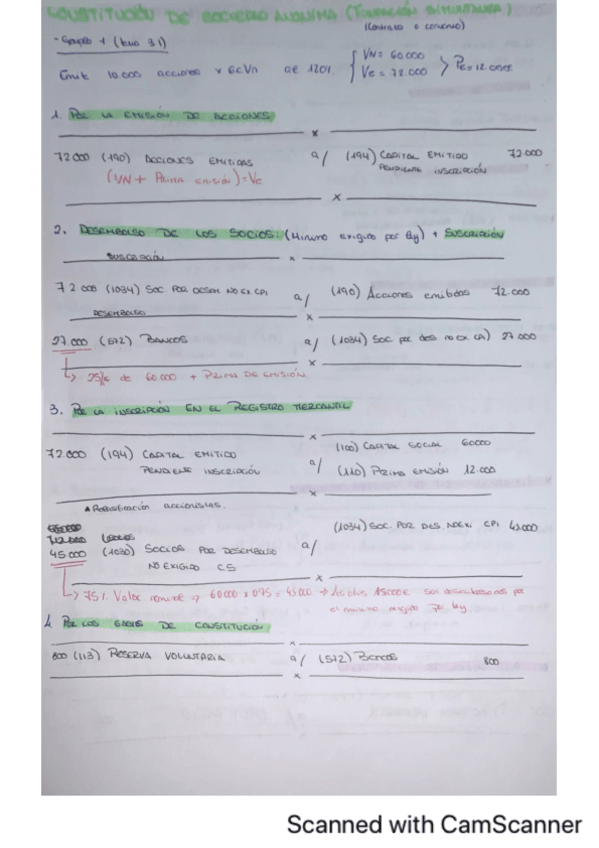 CONSTITUCIÓN DE SOCIEDAD ANÓNIMA (FUNDACIÓN SIMULTÁNEA)
(Contrato o convenio)
- Ejemplo 1 (tema 3.1)
Emite 10.000 acciones x 6€ Vn al 120%. { VN = 60.000 Ve = 72.000 > Pe = 12.000
1. POR LA EMISIÓN DE ACCIONES
x
72000 (190) ACCIONES EMITIDAS a/ (194) CAPITAL EMITIDO PENDIENTE INSCRIPCIÓN 72.000
(VN + PRIMA emisión) = Ve
x
2. DESEMBOLSO DE LOS SOCIOS: (Mínimo exigido por ley) + SUSCRIPCIÓN
SUSCRIPCIÓN x
72 000 (1034) SOC POR DESEM NO EX CPI a/ (190) Acciones emitidas 72.000
DESEMBOLSO x
27 000 (572) BANCOS a/ (1034) SOC por des no ex CPI) 27 000
x
↳ 25% de 60.000 + PRIMA DE EMISIÓN
3. POR LA INSCRIPCIÓN EN EL REGISTRO MERCANTIL
x
72.000 (194) CAPITAL EMITIDO PENDIENTE INSCRIPCIÓN a/ (100) CAPITAL SOCIAL 60000
(110) PRIMA EMISIÓN 12.000
x
(1034) SOC. POR DES NO EXI CPI 45.000
45 000 (1030) SOCIOS POR DESEMBOLSO NO EXIGIDO CS a/
x
↳ 75% Valor nominal → 60000 x 0'75 = 45000 → los otros 15000€ son desembolsados por
el mínimo exigido por ley.
4. POR LOS GASTOS DE CONSTITUCIÓN
x
800 (113) RESERVA VOLUNTARIA a/ (572) Bancos 800
x
Scanned with CamScanner